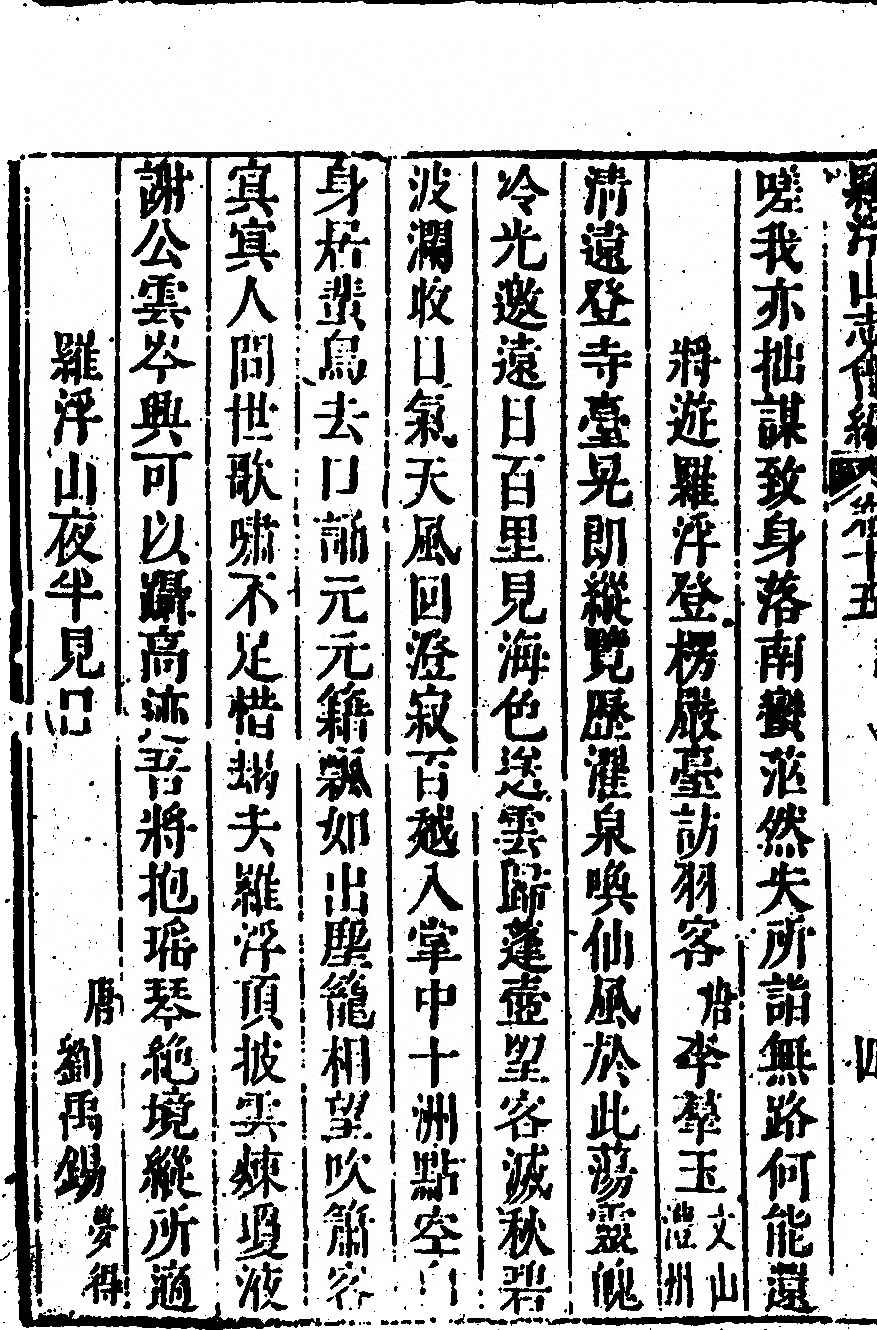 羅浮山志會編 卷十五 四
嗟我亦拙謀致身落南蠻茫然失所詣無路何能還
將遊羅浮登楞嚴臺訪羽客 唐 李羣玉 文山 澧州
清遠登寺臺晃朗縱覽歷濯泉喚仙風於此蕩靈魄
冷光邀遠日百里見海色送雲歸蓬壺望客滅秋碧
波瀾收日氣天風回澄寂百越入掌中十洲點空
身居蜚鳥去口誦元元籍飄如出塵籠相望吹簫客
寘寘人問世歌嘯不足惜朅夫羅浮頂披雲煉瓊液
謝公雲岑興可以躡高迹吾將抱瑶琴絶境縱所適
羅浮山夜半見日 唐 劉禹錫 夢得